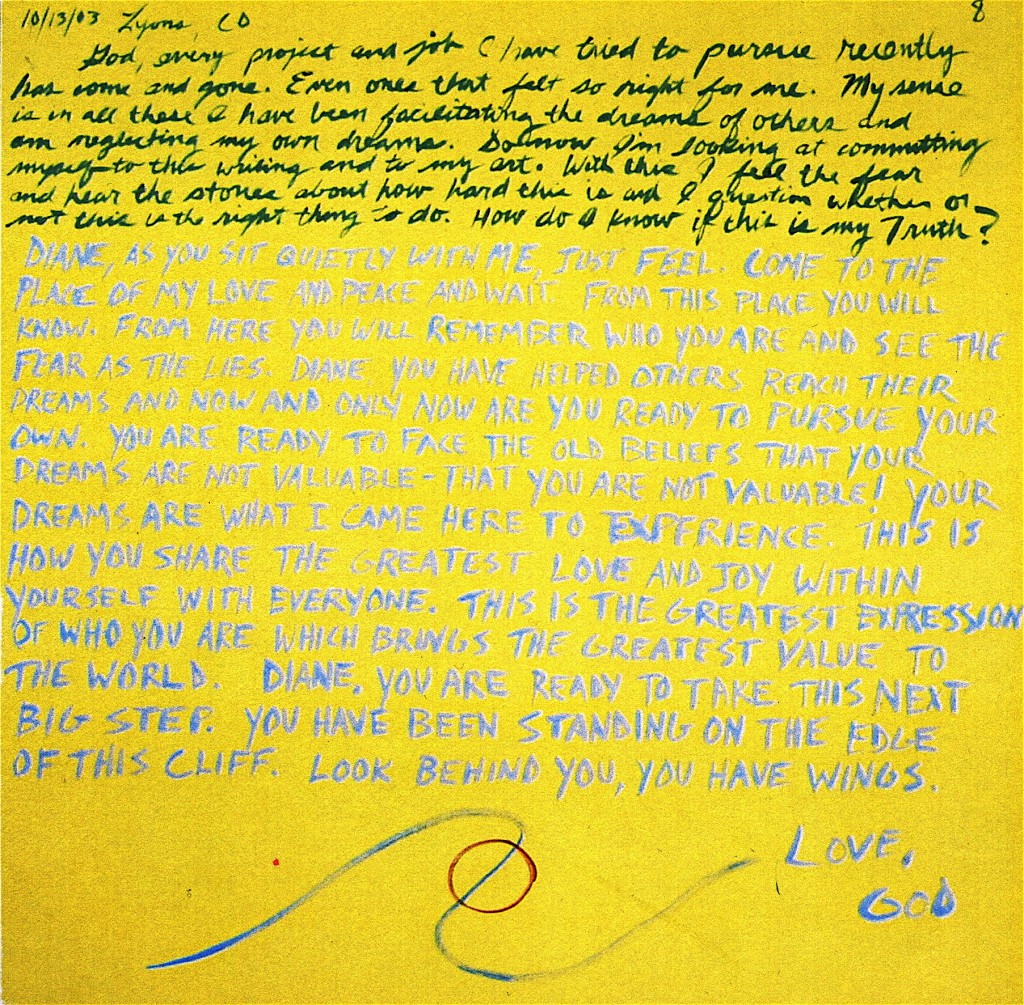 10/13/03 Lyons, CO
8
God, every project and job I have tried to pursue recently
has come and gone. Even ones that felt so right for me. My sense
is in all these I have been facilitating the dreams of others and
am neglecting my own dreams. So now I'm looking at committing
myself to this writing and to my art. With this I feel the fear
and hear the stories about how hard this is and I question whether or
not this is the right thing to do. How do I know if this is my Truth?
DIANE, AS YOU SIT QUIETLY WITH ME, JUST FEEL. COME TO THE
PLACE OF MY LOVE AND PEACE AND WAIT. FROM THIS PLACE YOU WILL
KNOW. FROM HERE YOU WILL REMEMBER WHO YOU ARE AND SEE THE
FEAR AS THE LIES. DIANE, YOU HAVE HELPED OTHERS REACH THEIR
DREAMS AND NOW AND ONLY NOW ARE YOU READY TO PURSUE YOUR
OWN. YOU ARE READY TO FACE THE OLD BELIEFS THAT YOUR
DREAMS ARE NOT VALUABLE - THAT YOU ARE NOT VALUABLE! YOUR
DREAMS ARE WHAT I CAME HERE TO EXPERIENCE. THIS IS
HOW YOU SHARE THE GREATEST LOVE AND JOY WITHIN
YOURSELF WITH EVERYONE. THIS IS THE GREATEST EXPRESSION
OF WHO YOU ARE WHICH BRINGS THE GREATEST VALUE TO
THE WORLD. DIANE, YOU ARE READY TO TAKE THIS NEXT
BIG STEP. YOU HAVE BEEN STANDING ON THE EDGE
OF THIS CLIFF. LOOK BEHIND YOU, YOU HAVE WINGS.
LOVE,
GOD